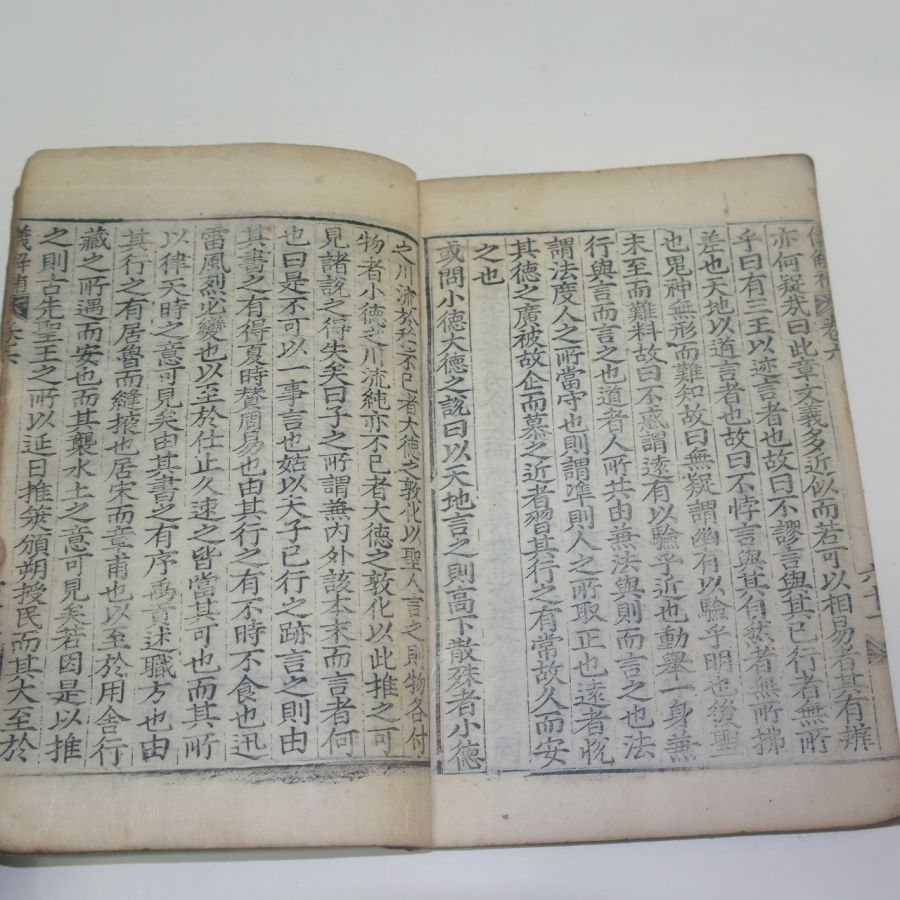 亦何疑哉曰此章文義多近似而若可以相易者其有辨
乎曰有三王以迹言者也故曰不謬言與其已行者無所
差也天地以道言者也故曰不悖言與其自然者無所拂
也鬼神無形而難知故曰無疑謂幽有以驗乎明也後聖
未至而難料故曰不惑謂遠有以驗乎近也動舉一身兼
行與言而言之也道者人所共由兼法與則而言之也法
謂法度人之所當守也則謂準則人之所取正也遠者悅
其德之廣被故企而慕之近者習其行之有常故久而安
之也
或問小德大德之說曰以天地言之則高下散殊者小德
之川流於穆不已者大德之敦化以聖人言之則物各付
物者小德之川流純亦不已者大德之敦化以此推之可
見諸說之得失矣曰子之所謂兼內外該本末而言者何
也曰是不可以一事言也姑以夫子已行之跡言之則由
其書之有得夏時贊周易也由其行之有不時不食也迅
雷風烈必變也以至於仕止久速之皆當其可也而其所
以律天時之意可見矣由其書之有序禹貢述職方也由
其行之有居魯而縫掖也居宋而章甫也以至於用舍行
藏之所遇而安也而其襲水土之意可見矣若因是以推
之則古先聖王之所以迎日推筴頒朔授民而其大至於